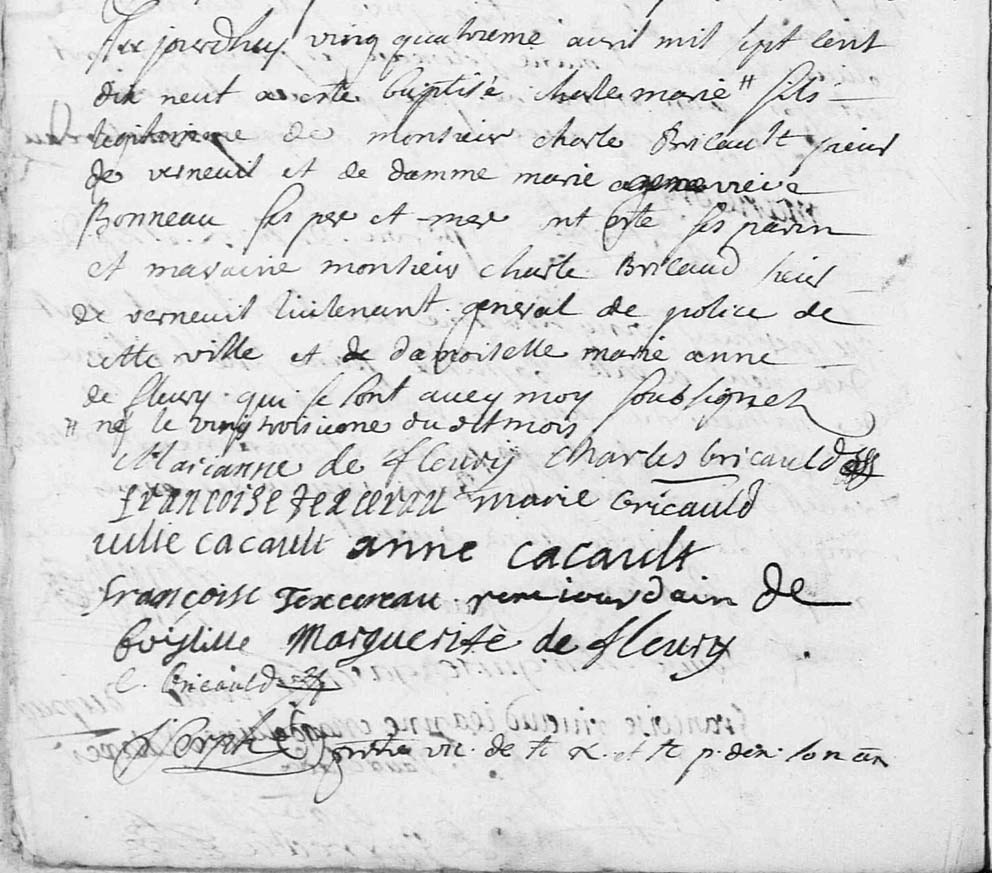 Aujourdhuy vingt quatrieme avril mil sept cent
dix neuf a este baptisé charle marie # fils
legitime de monsieur charle Bricault sieur
de verneuil et de damme marie genevieve
Bonneau ses per et mer ont este ses parin
et maraine monsieur charle Bricaud sieur
de verneuil lieutenant general de police de
cette ville et de damoiselle marie anne
de fleury qui se sont avecq moy soubsignez
# né le vingt troisieme dudit mois
Marianne de fleury charles bricauld
françoise texereau marie bricauld
iulie cacault anne cacault
françoise Texereau rene iourdain de
boisliue Marguerite de fleury
C. Bricauld
pretre vic. de st et st p.